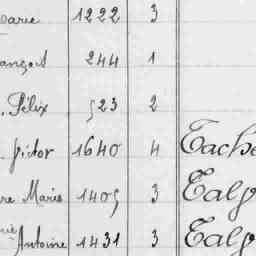 Marie 1222 3
ançois 244 1
. Félix 523 2
. Victor 1640 4 Tache
re Marie 1405 3 Talp
Antoine 1431 3 Talp